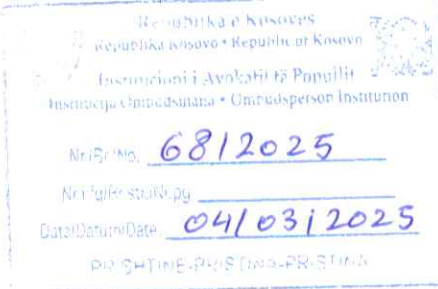 Republika e Kosovës
Republika Kosovo • Republic of Kosovo
Institucioni i Avokatit të Popullit
Institucija Ombudsmana • Ombudsperson Institution
Nr/Br/No. 68/2025
Nr.i fq/Br.str/Nr.pg
Data/Datum/Date 04/03/2025
PRISHTINË-PRIŠTINA-PRISTINA